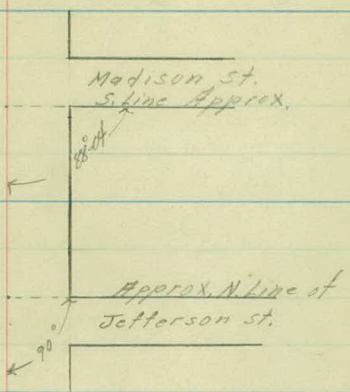 Madison St.
S. Line Approx.
88°
Approx. N. Line of
Jefferson St.
90°